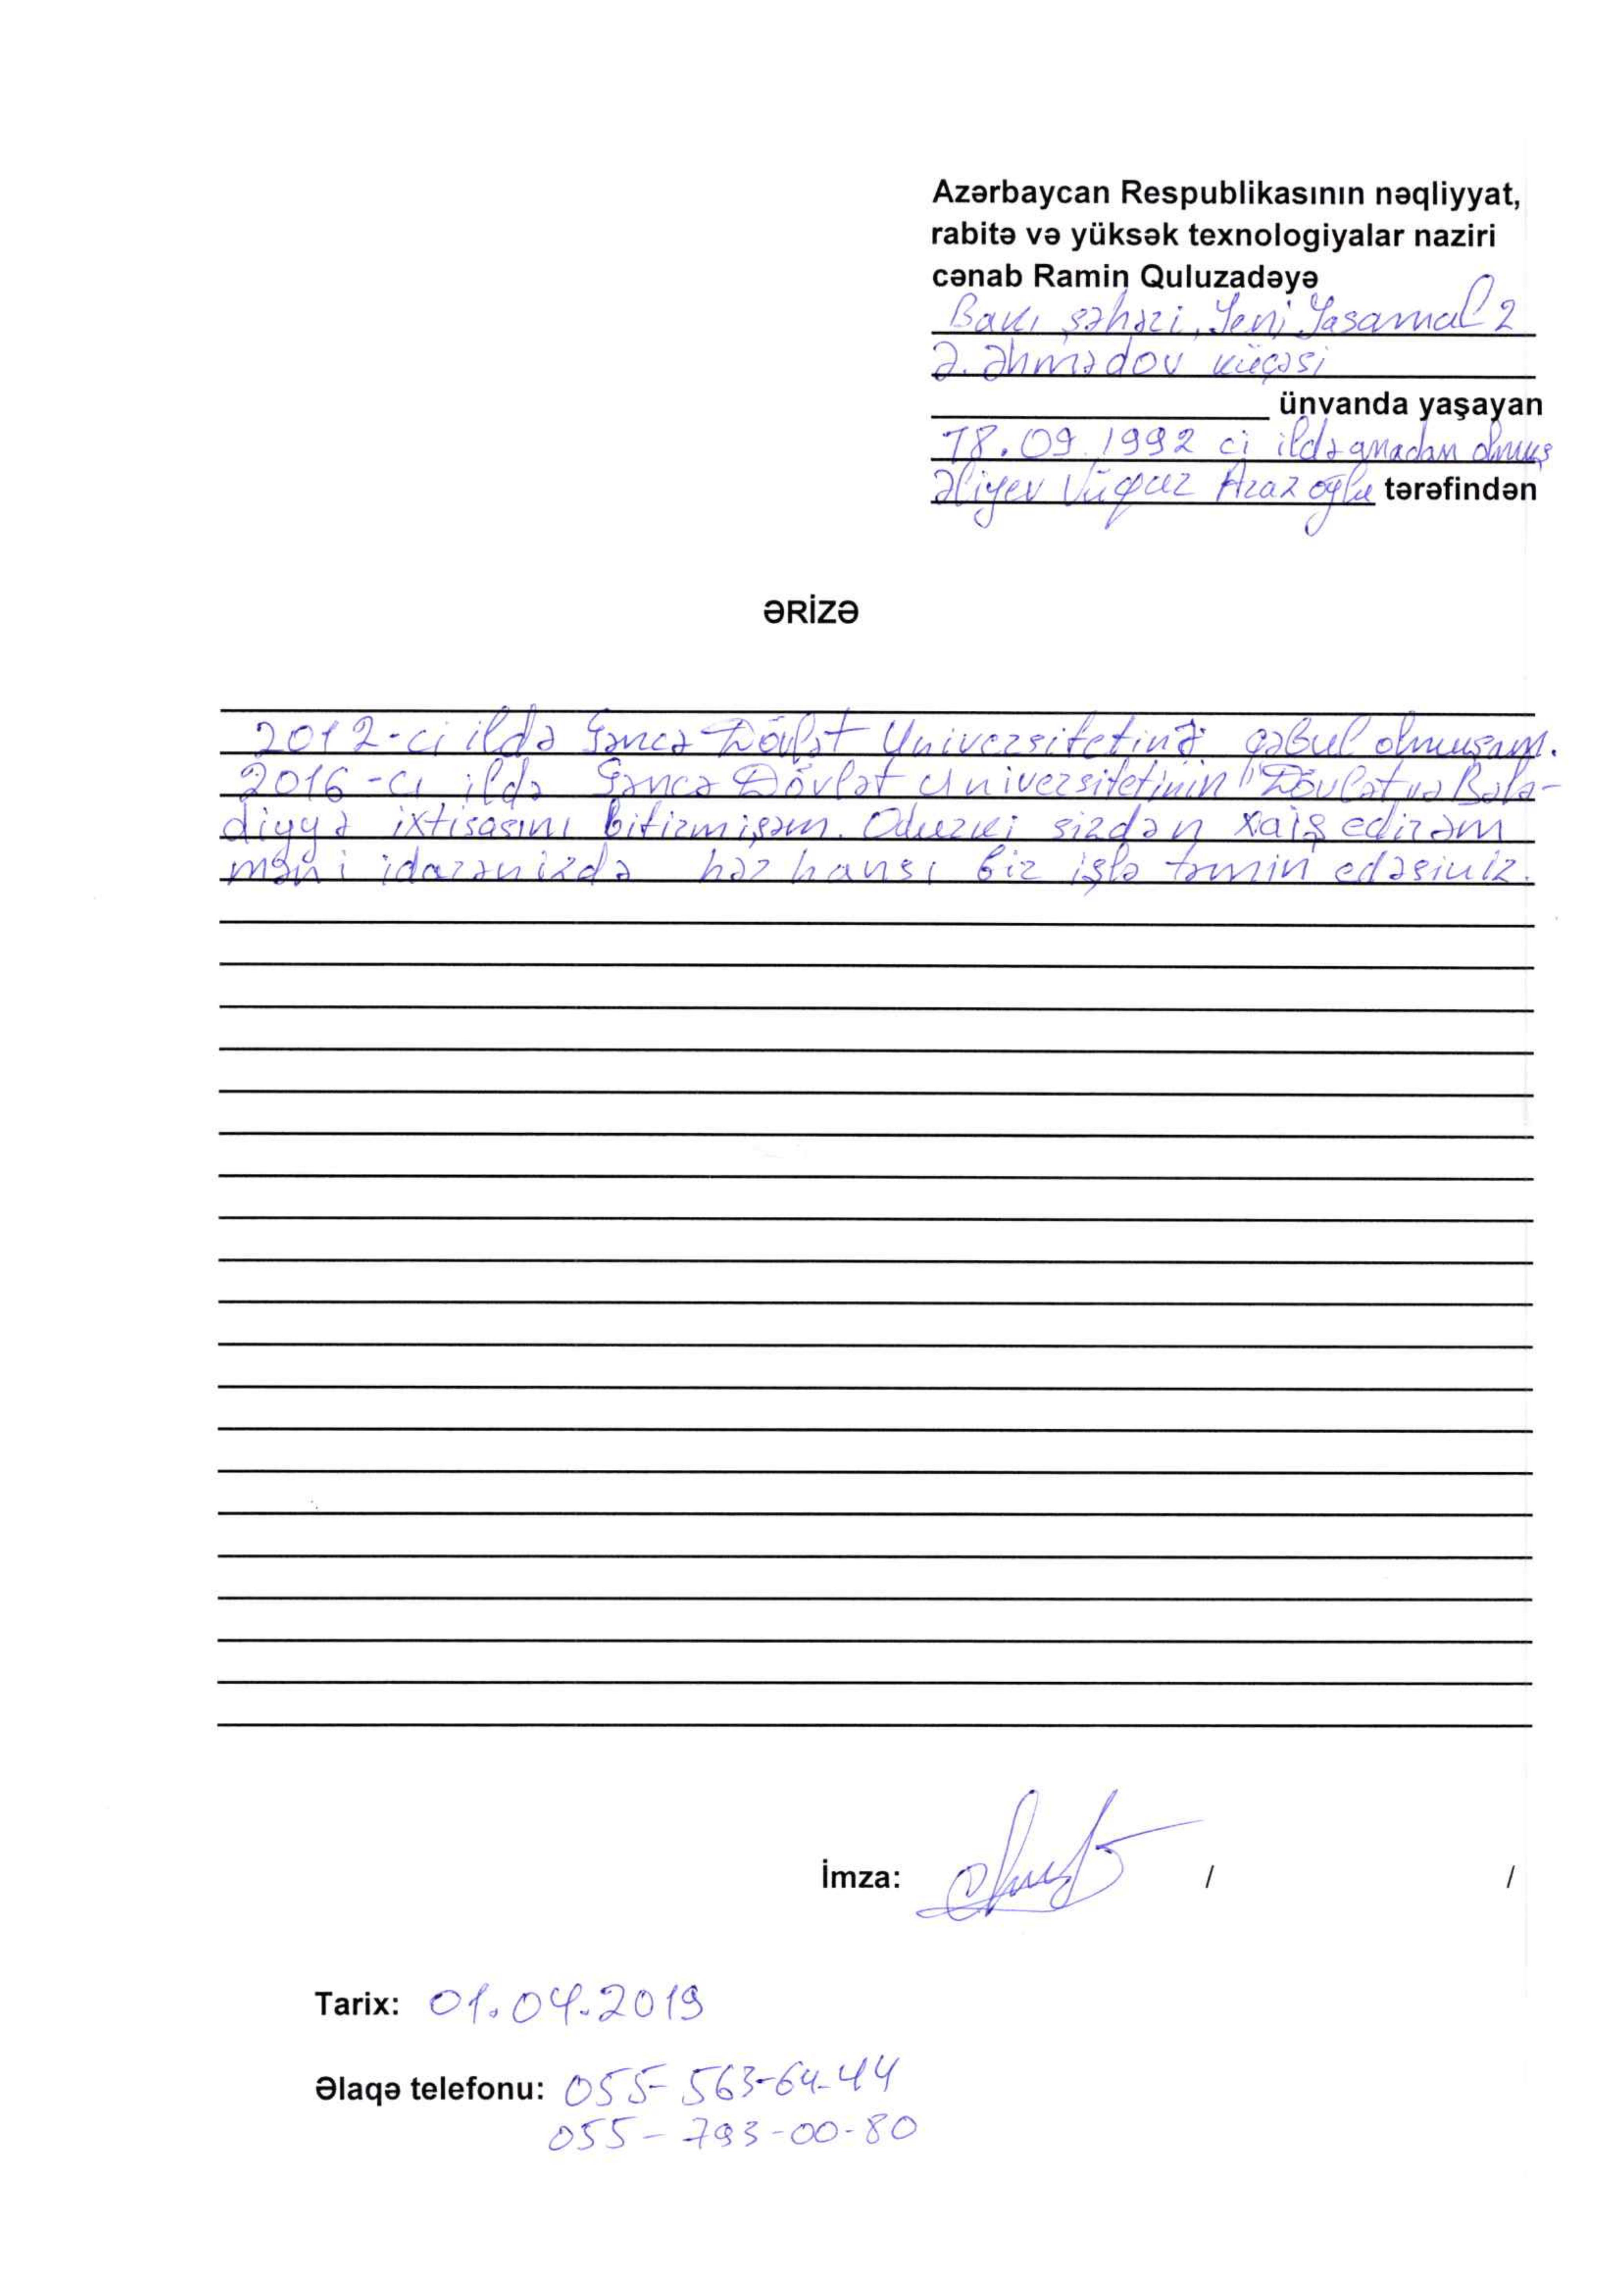 Azərbaycan Respublikasının nəqliyyat,
rabitə və yüksək texnologiyalar naziri
cənab Ramin Quluzadəyə
Bakı şəhəri, Yeni Yasamal 2
Ə. Əhmədov küçəsi
ünvanda yaşayan
18.09.1992 ci ildə anadan olmuş
Əliyev Vüqar Araz oğlu tərəfindən
ƏRİZƏ
2012-ci ildə Gəncə Dövlət Universitetinə qəbul olmuşam.
2016-cı ildə Gəncə Dövlət Universitetinin "Dövlət və Bələ-
diyyə ixtisasını bitirmişəm. Odurki sizdən xaiş edirəm
məni idarənizdə hər hansı bir işlə təmin edəsiniz.
İmza: / /
Tarix: 01.04.2019
Əlaqə telefonu: 055-563-64-44
055-793-00-80